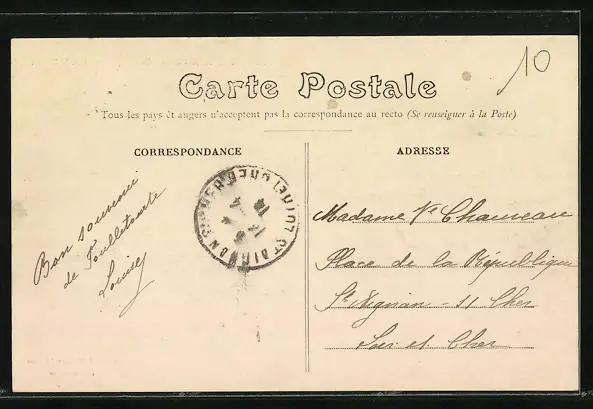 10
Carte Postale
Tous les pays étrangers n'acceptent pas la correspondance au recto (Se renseigner à la Poste)
CORRESPONDANCE
ADRESSE
Bon souvenir
de
Louisy
Madame Vve Chauveau
Place de la République
St Aignan - s/ Cher
Loir et Cher
ST AIGNAN